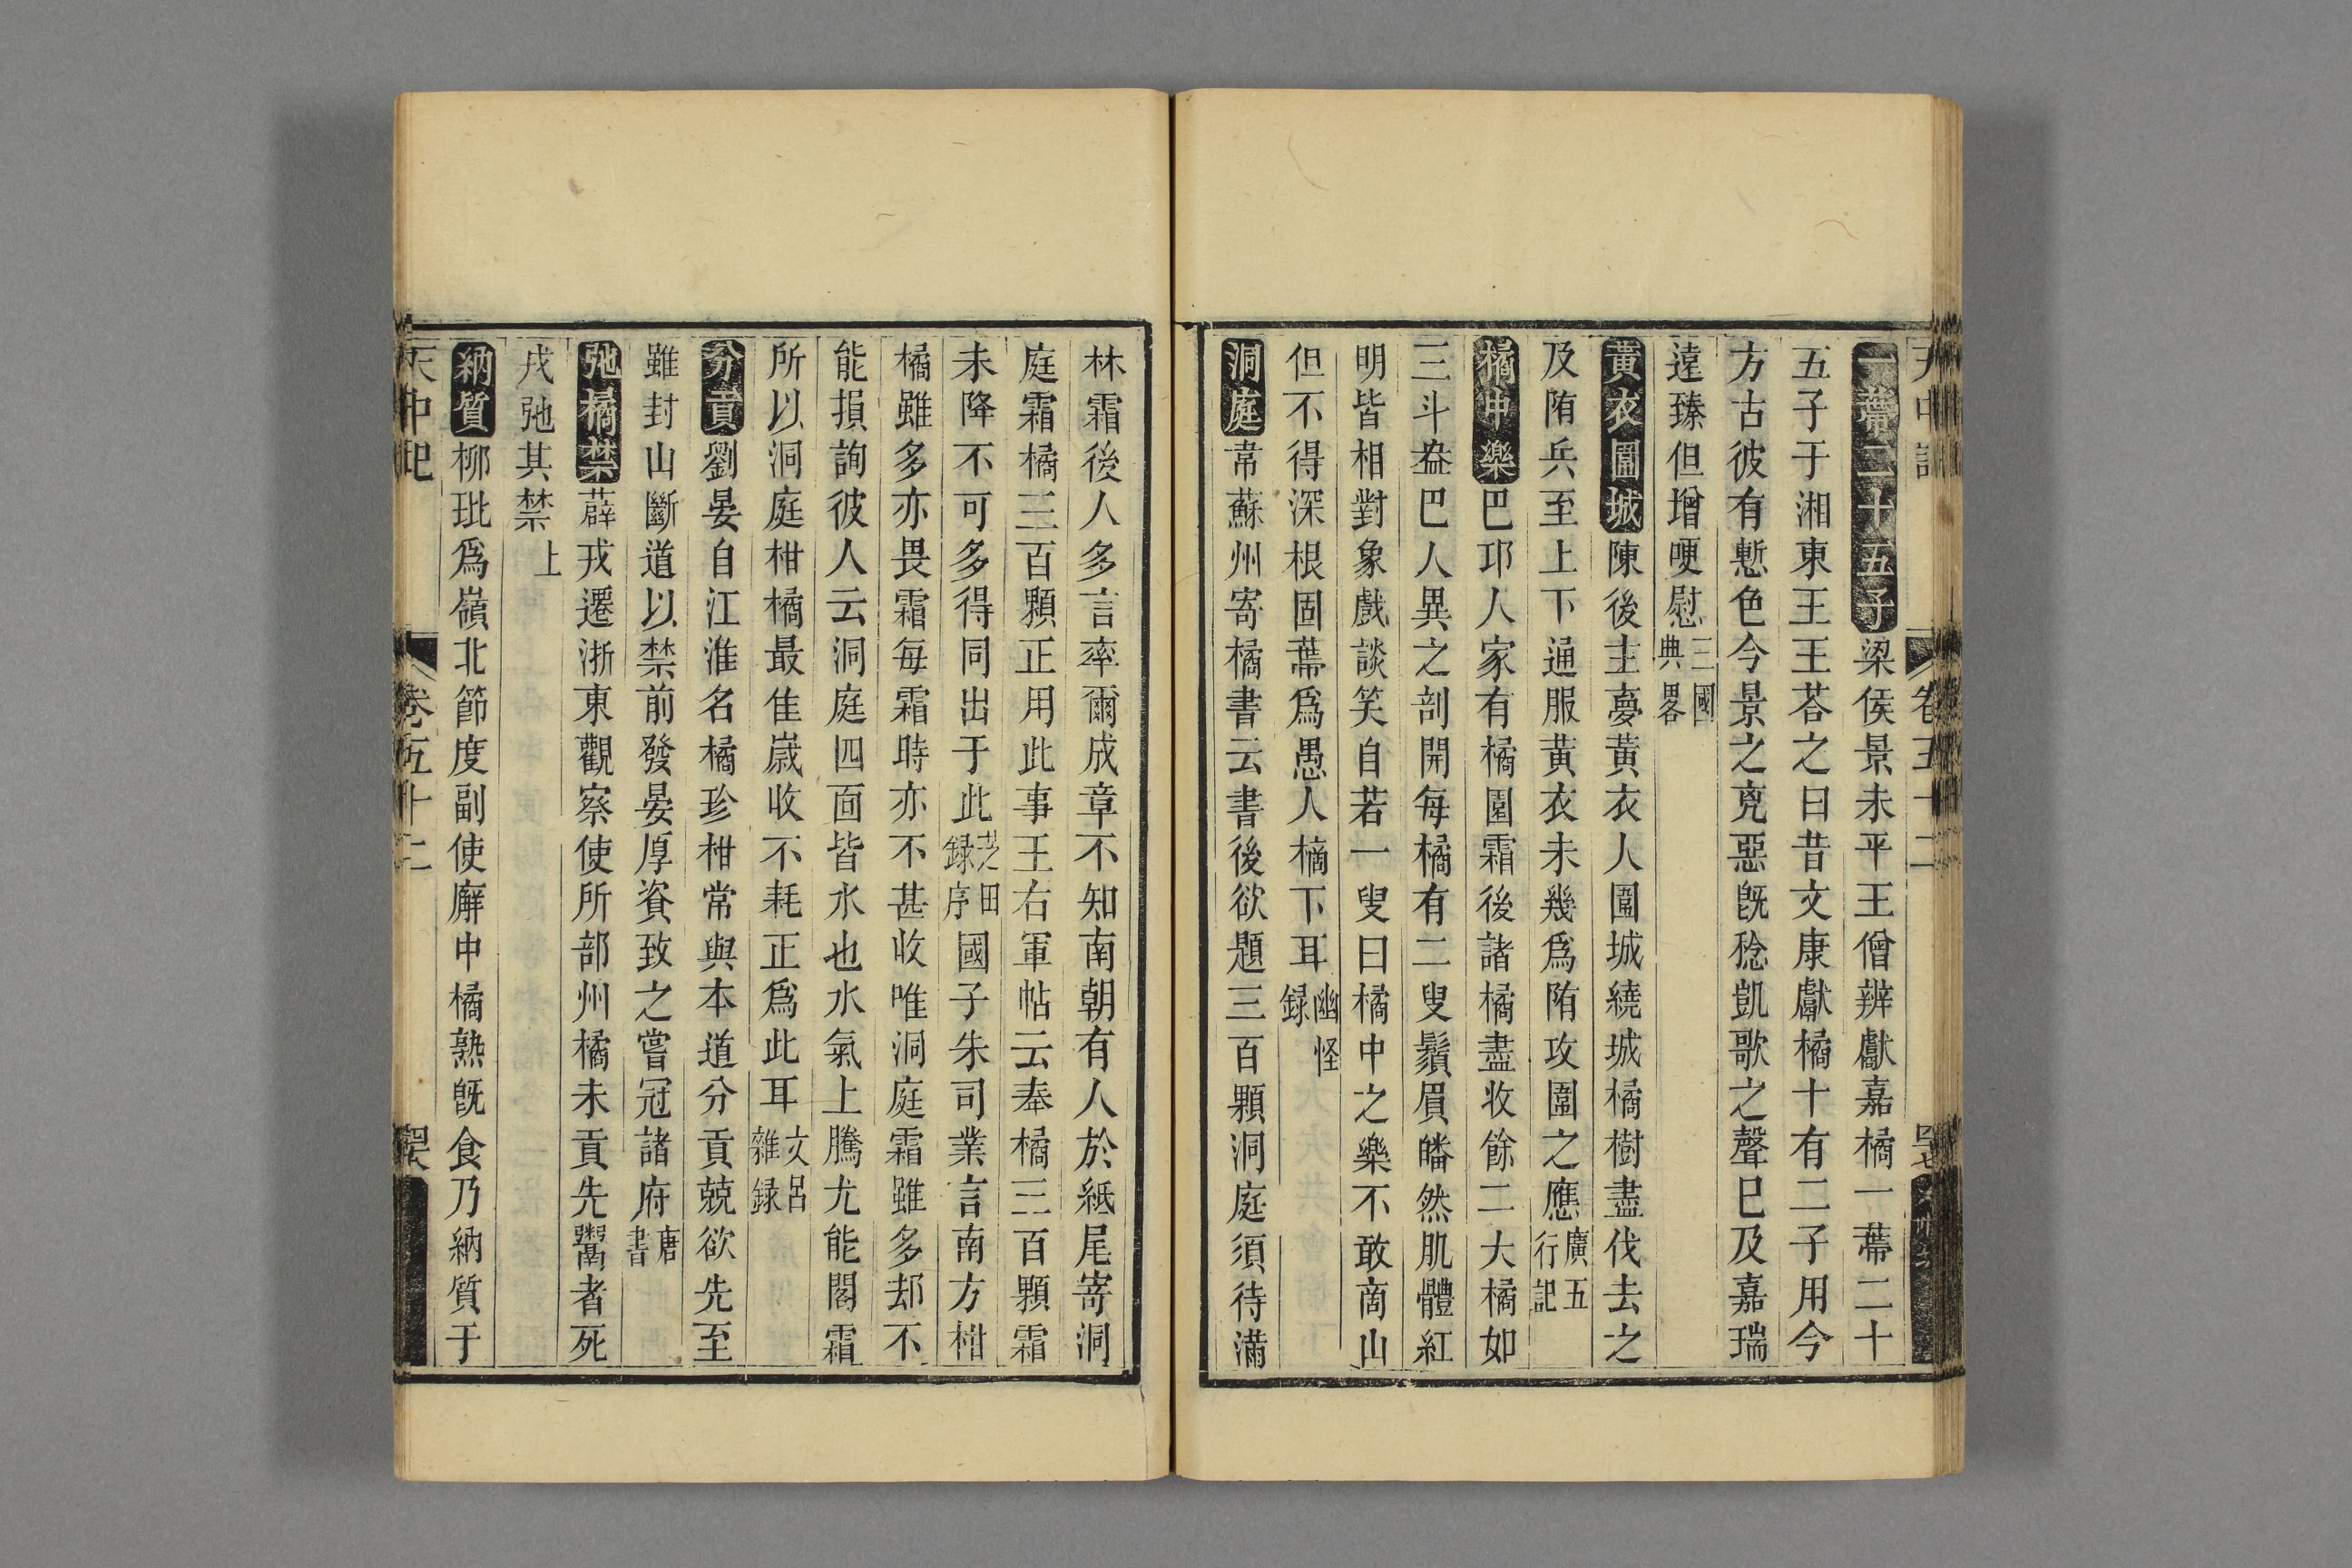 天中記 卷五十二
一蔕二十五子梁侯景未平王僧辨獻嘉橘一蔕二十
五子于湘東王王荅之曰昔文康獻橘十有二子用今
方古彼有慙色今景之兇惡旣稔凱歌之聲已及嘉瑞
遠臻但增哽慰三國典畧
黃衣圍城陳後主夢黃衣人圍城繞城橘樹盡伐去之
及陏兵至上下通服黃衣未幾爲陏攻圍之應廣五行記
橘中樂巴邛人家有橘園霜後諸橘盡收餘二大橘如
三斗盎巴人異之剖開每橘有二叟鬚眉皤然肌體紅
明皆相對象戲談笑自若一叟曰橘中之樂不敢啇山
但不得深根固蔕爲愚人樀下耳幽怪録
洞庭韋蘇州寄橘書云書後欲題三百顆洞庭須待滿
林霜後人多言率爾成章不知南朝有人於紙尾寄洞
庭霜橘三百顆正用此事王右軍帖云奉橘三百顆霜
未降不可多得同出于此芝田録序國子朱司業言南方柑
橘雖多亦畏霜每霜時亦不甚收唯洞庭霜雖多却不
能損詢彼人云洞庭四面皆水也水氣上騰尤能閣霜
所以洞庭柑橘最佳歲收不耗正爲此耳文呂雜録
分貢劉晏自江淮名橘珍柑常與本道分貢兢欲先至
雖封山斷道以禁前發晏厚資致之嘗冠諸府唐書
弛橘禁薜戎遷浙東觀察使所部州橘未貢先鬻者死
戎弛其禁上
納質柳玭爲嶺北節度副使廨中橘熟旣食乃納質于
天中記 卷五十二